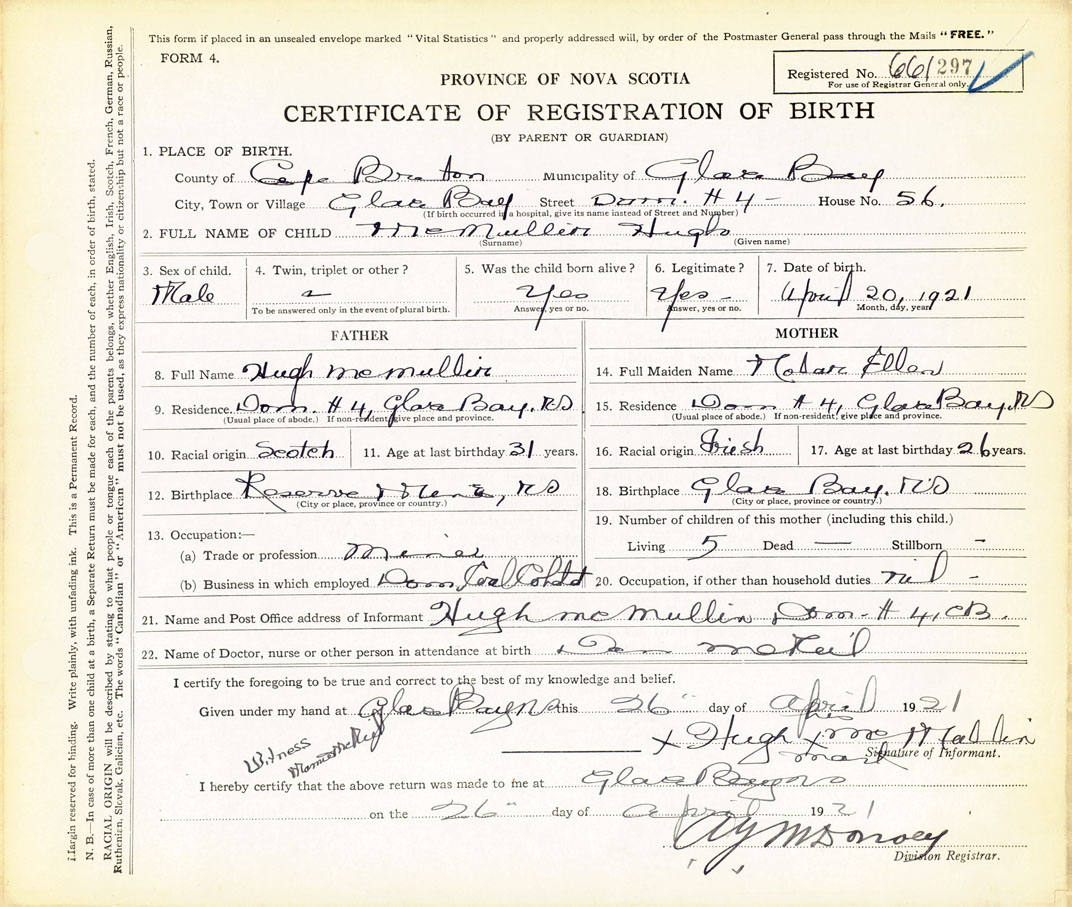 This form if placed in an unsealed envelope marked "Vital Statistics" and properly addressed will, by order of the Postmaster General pass through the Mails "FREE."
FORM 4.
PROVINCE OF NOVA SCOTIA
Registered No. 661297
For use of Registrar General only.
CERTIFICATE OF REGISTRATION OF BIRTH
(BY PARENT OR GUARDIAN)
1. PLACE OF BIRTH.
County of Cape Breton Municipality of Glace Bay
City, Town or Village Glace Bay Street Dom. #4 - House No. 56.
(If birth occurred in a hospital, give its name instead of Street and Number)
2. FULL NAME OF CHILD McMullin Hugh
(Surname) (Given name)
3. Sex of child. 4. Twin, triplet or other? 5. Was the child born alive? 6. Legitimate? 7. Date of birth.
Male Yes Yes - April 20, 1921
To be answered only in the event of plural birth. Answer, yes or no. Answer, yes or no. Month, day, year
FATHER
8. Full Name Hugh McMullin
9. Residence Dom. #4, Glace Bay. NS
(Usual place of abode.) If non-resident give place and province.
10. Racial origin Scotch 11. Age at last birthday 31 years.
12. Birthplace Reserve Mines, NS
(City or place, province or country.)
13. Occupation:—
(a) Trade or profession Miner
(b) Business in which employed Dom. Coal Co Ltd
MOTHER
14. Full Maiden Name Ellen
15. Residence Dom #4, Glace Bay. NS
(Usual place of abode.) If non-resident, give place and province.
16. Racial origin Irish 17. Age at last birthday 26 years.
18. Birthplace Glace Bay. NS
(City or place, province or country.)
19. Number of children of this mother (including this child.)
Living 5 Dead — Stillborn -
20. Occupation, if other than household duties nil -
21. Name and Post Office address of Informant Hugh McMullin Dom. #4, CB.
22. Name of Doctor, nurse or other person in attendance at birth McNeil
I certify the foregoing to be true and correct to the best of my knowledge and belief.
Given under my hand at Glace Bay NS this 26" day of April 1921
his
x Hugh x McMullin
mark
Signature of Informant.
Witness
I hereby certify that the above return was made to me at Glace Bay NS
on the 26" day of April 1921
Division Registrar.
Margin reserved for binding. Write plainly, with unfading ink. This is a Permanent Record.
N. B.—In case of more than one child at a birth, a Separate Return must be made for each, and the number of each, in order of birth, stated.
RACIAL ORIGIN will be described by stating to what people or tongue each of the parents belongs, whether English, Irish, Scotch, French, German, Russian,
Ruthenian, Slovak, Galician, etc. The words "Canadian" or "American" must not be used, as they express nationality or citizenship but not a race or people.